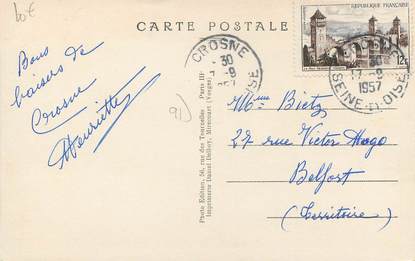 60f
CARTE POSTALE
REPUBLIQUE FRANÇAISE
12F
CROSNE
30
-9
OISE
CROSNE
17-9
1957
SEINE-ET-OISE
91
Bons
baisers de
Crosne
Henriette
Photo Edition, 56, rue des Tournelles, Paris III
Imprimerie Daniel Delboy, Mirecourt (Vosges)
Mme Bietz
27 rue Victor Hugo
Belfort
(Territoire)